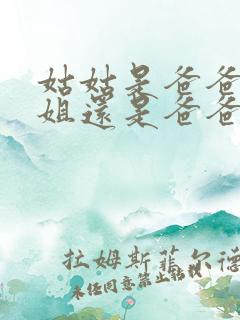 姑姑是爸爸
姐還是爸爸
拉姆斯菲尔德
未经同意禁止转载